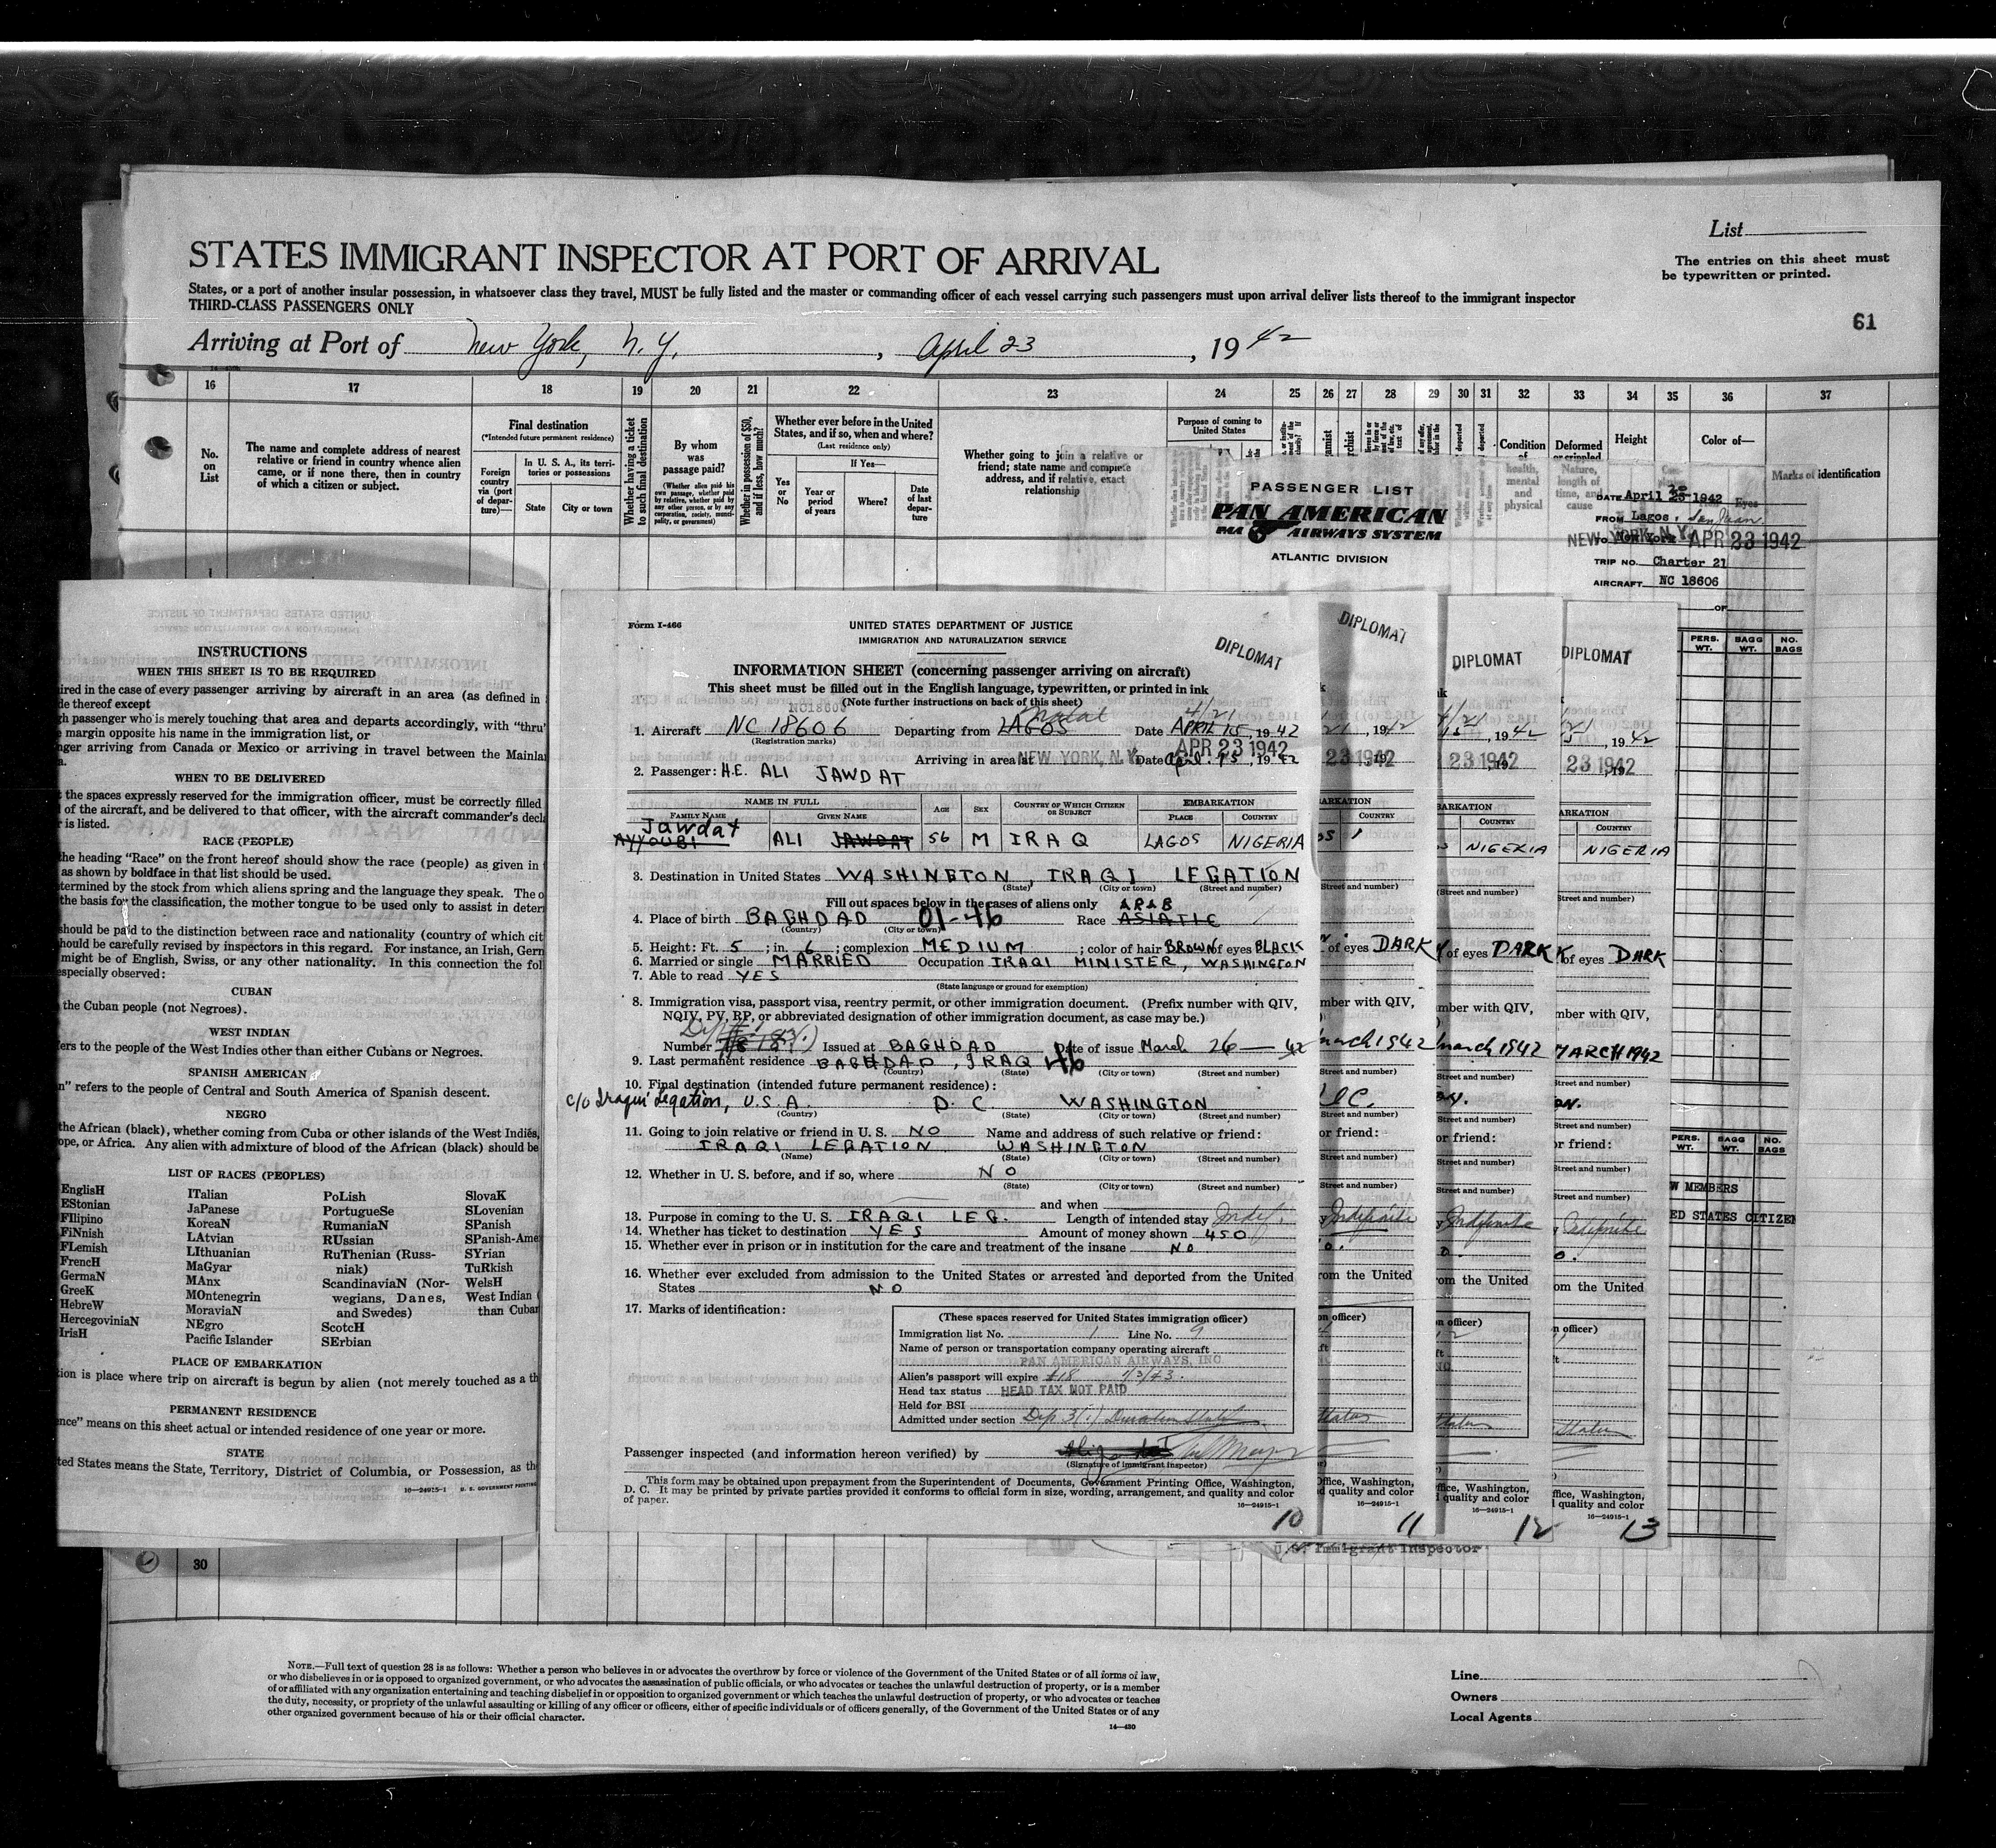 List
The entries on this sheet must
be typewritten or printed.
STATES IMMIGRANT INSPECTOR AT PORT OF ARRIVAL
States, or a port of another insular possession, in whatsoever class they travel, MUST be fully listed and the master or commanding officer of each vessel carrying such passengers must upon arrival deliver lists thereof to the immigrant inspector
THIRD-CLASS PASSENGERS ONLY
61
Arriving at Port of New York, N.Y., April 23, 1942
16 17 18 19 20 21 22 23 24 25 26 27 28 29 30 31 32 33 34 35 36 37
No. on List
The name and complete address of nearest
relative or friend in country whence alien
came, or if none there, then in country
of which a citizen or subject.
Final destination
(*Intended future permanent residence)
Foreign country via (port of departure)—
In U. S. A., its territories or possessions
State
City or town
Whether having a ticket to such final destination
By whom was passage paid?
(Whether alien paid his own passage, whether paid by relative, whether paid by any other person, or by any corporation, society, municipality, or government)
Whether in possession of $50, and if less, how much?
Whether ever before in the United
States, and if so, when and where?
(Last residence only)
If Yes—
Yes or No
Year or period of years
Where?
Date of last departure
Whether going to join a relative or
friend; state name and complete
address, and if relative, exact
relationship
Purpose of coming to
United States
Condition of
health, mental and physical
Deformed or crippled
Nature, length of time, and cause
Height
Color of—
Eyes
Marks of identification
PASSENGER LIST
PAN AMERICAN
PAA AIRWAYS SYSTEM
ATLANTIC DIVISION
DATE April 25 1942
FROM Lagos, San Juan
TO New York
NEW YORK, N.Y. APR 23 1942
TRIP NO. Charter 21
AIRCRAFT NC 18606
of
PERS. WT. BAGG WT. NO. BAGS
INSTRUCTIONS
WHEN THIS SHEET IS TO BE REQUIRED
ired in the case of every passenger arriving by aircraft in an area (as defined in
de thereof except
gh passenger who is merely touching that area and departs accordingly, with "thru"
e margin opposite his name in the immigration list, or
nger arriving from Canada or Mexico or arriving in travel between the Mainla
a.
WHEN TO BE DELIVERED
t the spaces expressly reserved for the immigration officer, must be correctly filled
l of the aircraft, and be delivered to that officer, with the aircraft commander's decla
r is listed.
RACE (PEOPLE)
the heading "Race" on the front hereof should show the race (people) as given in
as shown by boldface in that list should be used.
termined by the stock from which aliens spring and the language they speak. The o
the basis for the classification, the mother tongue to be used only to assist in deter
should be paid to the distinction between race and nationality (country of which cit
hould be carefully revised by inspectors in this regard. For instance, an Irish, Gern
might be of English, Swiss, or any other nationality. In this connection the fol
especially observed:
CUBAN
the Cuban people (not Negroes).
WEST INDIAN
ers to the people of the West Indies other than either Cubans or Negroes.
SPANISH AMERICAN
n" refers to the people of Central and South America of Spanish descent.
NEGRO
the African (black), whether coming from Cuba or other islands of the West Indies,
ope, or Africa. Any alien with admixture of blood of the African (black) should be
LIST OF RACES (PEOPLES)
EnglisH
EStonian
FIlipino
FiNnish
FLemish
FrencH
GermaN
GreeK
HebreW
HercegoviniaN
IrisH
ITalian
JaPanese
KoreaN
LAtvian
LIthuanian
MaGyar
MAnx
MOntenegrin
MoraviaN
NEgro
Pacific Islander
PoLish
PortugueSe
RumaniaN
RUssian
RuThenian (Russ-
niak)
ScandinaviaN (Nor-
wegians, Danes,
and Swedes)
ScotcH
SErbian
SlovaK
SLovenian
SPanish
SPanish-Ame
SYrian
TuRkish
WelsH
West Indian
than Cuban
PLACE OF EMBARKATION
tion is place where trip on aircraft is begun by alien (not merely touched as a th
PERMANENT RESIDENCE
ence" means on this sheet actual or intended residence of one year or more.
STATE
ted States means the State, Territory, District of Columbia, or Possession, as the
16—24915-1 U. S. GOVERNMENT PRINTING
Form I-466
UNITED STATES DEPARTMENT OF JUSTICE
IMMIGRATION AND NATURALIZATION SERVICE
DIPLOMAT
INFORMATION SHEET (concerning passenger arriving on aircraft)
This sheet must be filled out in the English language, typewritten, or printed in ink
(Note further instructions on back of this sheet)
NC18606
Natal 4/21
1. Aircraft NC 18606 Departing from LAGOS Date APRIL 15, 1942
(Registration marks)
APR 23 1942
Arriving in area at NEW YORK, N.Y. Date April 15, 1942
2. Passenger: H.E. ALI JAWDAT
NAME IN FULL
FAMILY NAME GIVEN NAME
AGE SEX COUNTRY OF WHICH CITIZEN OR SUBJECT
EMBARKATION
PLACE COUNTRY
Jawdat
AYYOUBI ALI JAWDAT 56 M IRAQ LAGOS NIGERIA
3. Destination in United States WASHINGTON, IRAQI LEGATION
(State) (City or town) (Street and number)
Fill out spaces below in the cases of aliens only
ARAB
4. Place of birth BAGHDAD 01-46 Race ASIATIC
(Country) (City or town)
5. Height: Ft. 5; in. 6; complexion MEDIUM; color of hair BROWN of eyes BLACK
6. Married or single MARRIED Occupation IRAQI MINISTER, WASHINGTON
7. Able to read YES
(State language or ground for exemption)
8. Immigration visa, passport visa, reentry permit, or other immigration document. (Prefix number with QIV,
NQIV, PV, RP, or abbreviated designation of other immigration document, as case may be.)
Number Issued at BAGHDAD Date of issue March 26 — 42
9. Last permanent residence BAGHDAD, IRAQ 46
(Country) (State) (City or town) (Street and number)
10. Final destination (intended future permanent residence):
c/o Iraqui Legation, U.S.A. D.C WASHINGTON
(Country) (State) (City or town) (Street and number)
11. Going to join relative or friend in U. S. NO Name and address of such relative or friend:
IRAQI LEGATION WASHINGTON
(Name) (State) (City or town) (Street and number)
12. Whether in U. S. before, and if so, where NO
(State) (City or town) (Street and number)
and when
13. Purpose in coming to the U. S. IRAQI LEG. Length of intended stay Indef.
14. Whether has ticket to destination YES Amount of money shown 450
15. Whether ever in prison or in institution for the care and treatment of the insane NO
16. Whether ever excluded from admission to the United States or arrested and deported from the United
States NO
17. Marks of identification:
(These spaces reserved for United States immigration officer)
Immigration list No. 1 Line No. 9
Name of person or transportation company operating aircraft
PAN AMERICAN AIRWAYS, INC
Alien's passport will expire #18 1/3/43.
Head tax status HEAD TAX NOT PAID
Held for BSI
Admitted under section Dip 3(1) Duration Status
Passenger inspected (and information hereon verified) by
(Signature of immigrant inspector)
This form may be obtained upon prepayment from the Superintendent of Documents, Government Printing Office, Washington,
D. C. It may be printed by private parties provided it conforms to official form in size, wording, arrangement, and quality and color
of paper.
16—24915-1
10
DIPLOMAT
23 1942
of eyes DARK
mber with QIV,
March 1942
Street and number)
D.C.
or friend:
Indefinite
rom the United
n officer)
Status
Office, Washington,
d quality and color
16—24915-1
11
DIPLOMAT
23 1942
COUNTRY
NIGERIA
of eyes DARK
mber with QIV,
March 1942
or friend:
Indefinite
om the United
n officer)
ffice, Washington,
l quality and color
16—24915-1
12
DIPLOMAT
23 1942
ARKATION
COUNTRY
NIGERIA
of eyes DARK
mber with QIV,
MARCH 1942
r friend:
om the United
n officer)
ffice, Washington,
l quality and color
16—24915-1
13
PERS. WT. BAGG WT. NO. BAGS
W MEMBERS
ED STATES CITIZEN
U.S. Immigrant Inspector
30
NOTE.—Full text of question 28 is as follows: Whether a person who believes in or advocates the overthrow by force or violence of the Government of the United States or of all forms of law,
or who disbelieves in or is opposed to organized government, or who advocates the assassination of public officials, or who advocates or teaches the unlawful destruction of property, or is a member
of or affiliated with any organization entertaining and teaching disbelief in or opposition to organized government or which teaches the unlawful destruction of property, or who advocates or teaches
the duty, necessity, or propriety of the unlawful assaulting or killing of any officer or officers, either of specific individuals or of officers generally, of the Government of the United States or of any
other organized government because of his or their official character.
14—430
Line
Owners
Local Agents